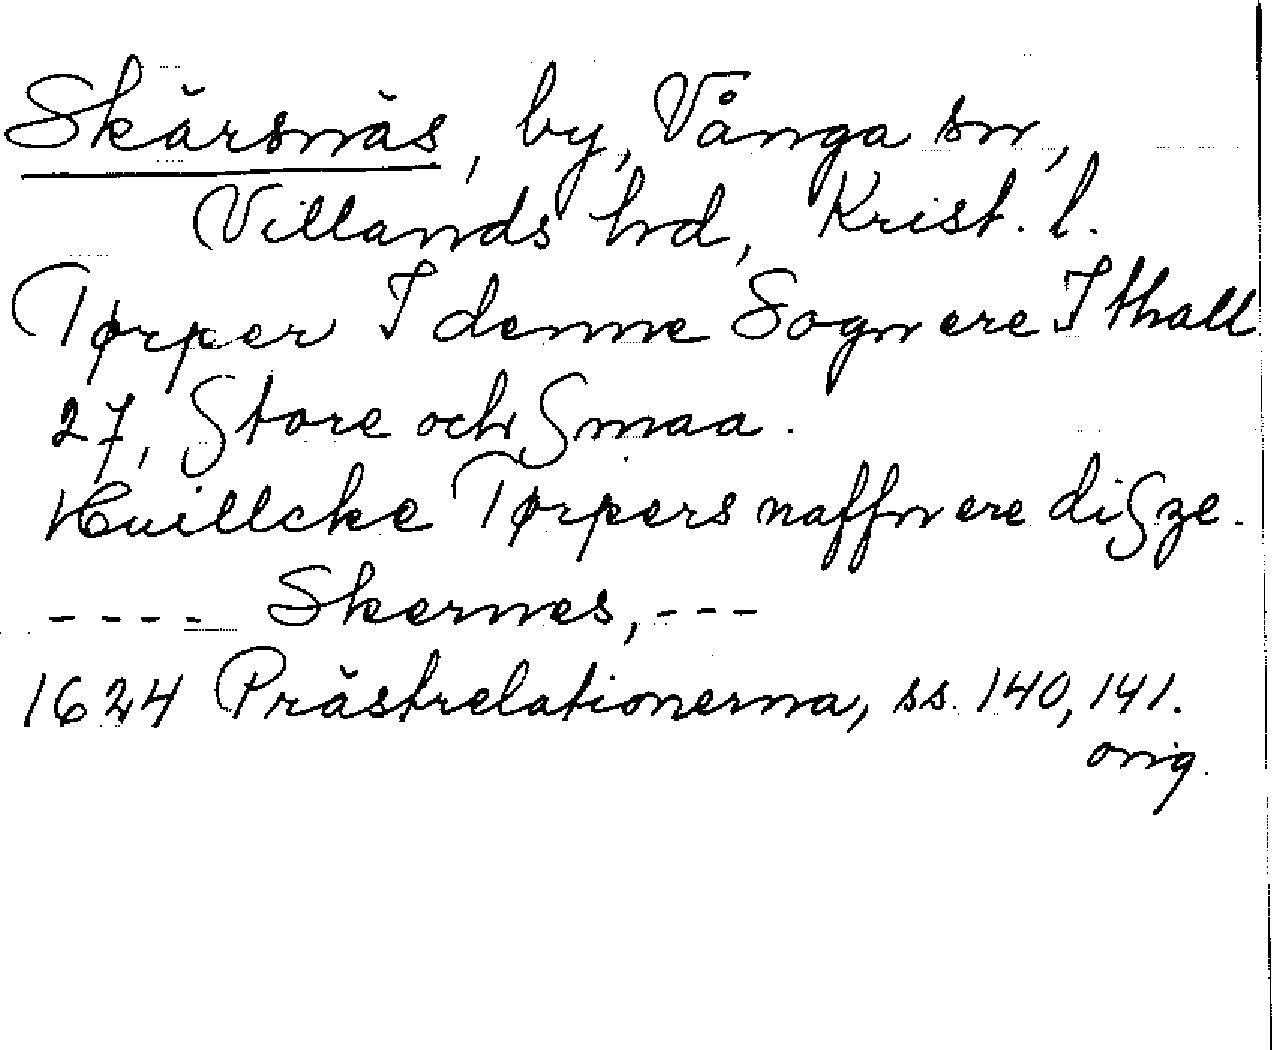 Skärsnäs, by, Vånga sn,
Villands hd, Krist. l.
Tørper I denne Sogn ere I thall
27, Store och Smaa.
Huillcke Tørpers naffn ere diSze.
---- Skernes, ---
1624 Prästrelationerna, ss. 140, 141.
orig.